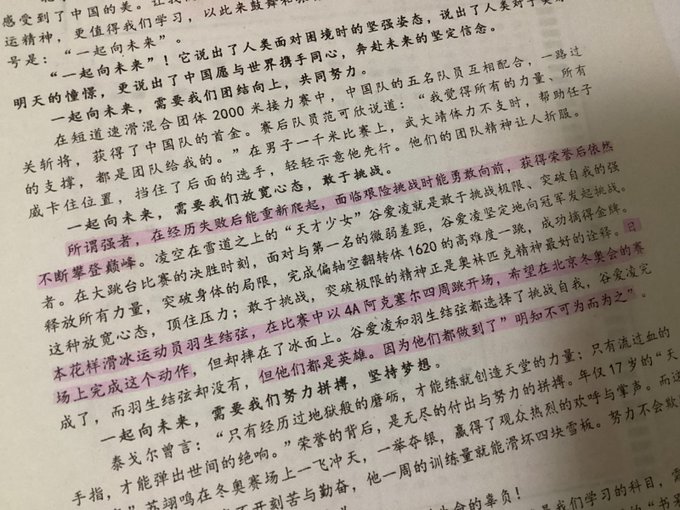 感受到了中国的美。让我
运精神，更值得我们学习，以此来鼓舞和
号是：“一起向未来”。
“一起向未来”！它说出了人类面对困境时的坚强姿态，说出了人类对于美
明天的憧憬，更说出了中国愿与世界携手同心，奔赴未来的坚定信念。
一起向未来，需要我们团结向上，共同努力。
在短道速滑混合团体 2000 米接力赛中，中国队的五名队员互相配合，一路过
关斩将，获得了中国队的首金。赛后队员范可欣说道：“我觉得所有的力量、所有
的支撑，都是团队给我的。”在男子一千米比赛上，武大靖体力不支时，帮助任子
威卡住位置，挡住了后面的选手，轻轻示意他先行。他们的团队精神让人折服。
一起向未来，需要我们放宽心态，敢于挑战。
所谓强者，在经历失败后能重新爬起，面临艰险挑战时能勇敢向前，获得荣誉后依然
不断攀登巅峰。凌空在雪道之上的“天才少女”谷爱凌就是敢于挑战极限、突破自我的强
者。在大跳台比赛的决胜时刻，面对与第一名的微弱差距，谷爱凌坚定地向冠军发起挑战。
释放所有力量，突破身体的局限，完成偏轴空翻转体1620的高难度一跳，成功摘得金牌。
这种放宽心态，顶住压力；敢于挑战，突破极限的精神正是奥林匹克精神最好的诠释。日
本花样滑冰运动员羽生结弦，在比赛中以4A阿克塞尔四周跳开场，希望在北京冬奥会的赛
场上完成这个动作，但却摔在了冰面上。谷爱凌和羽生结弦都选择了挑战自我，谷爱凌完
成了，而羽生结弦却没有，但他们都是英雄。因为他们都做到了”明知不可为而为之”。
一起向未来，需要我们努力拼搏，坚持梦想。
泰戈尔曾言：“只有经历过地狱般的磨砺，才能练就创造天堂的力量；只有流过血的
手指，才能弹出世间的绝响。”荣誉的背后，是无尽的付出与努力的拼搏。年仅17岁的“天
”苏翊鸣在冬奥赛场上一飞冲天，一举夺银，赢得了观众热烈的欢呼与掌声。而这
不开刻苦与勤奋，他一周的训练量就能滑坏四块雪板。努力不会欺
生命的辜负！
是我们学习的科目，